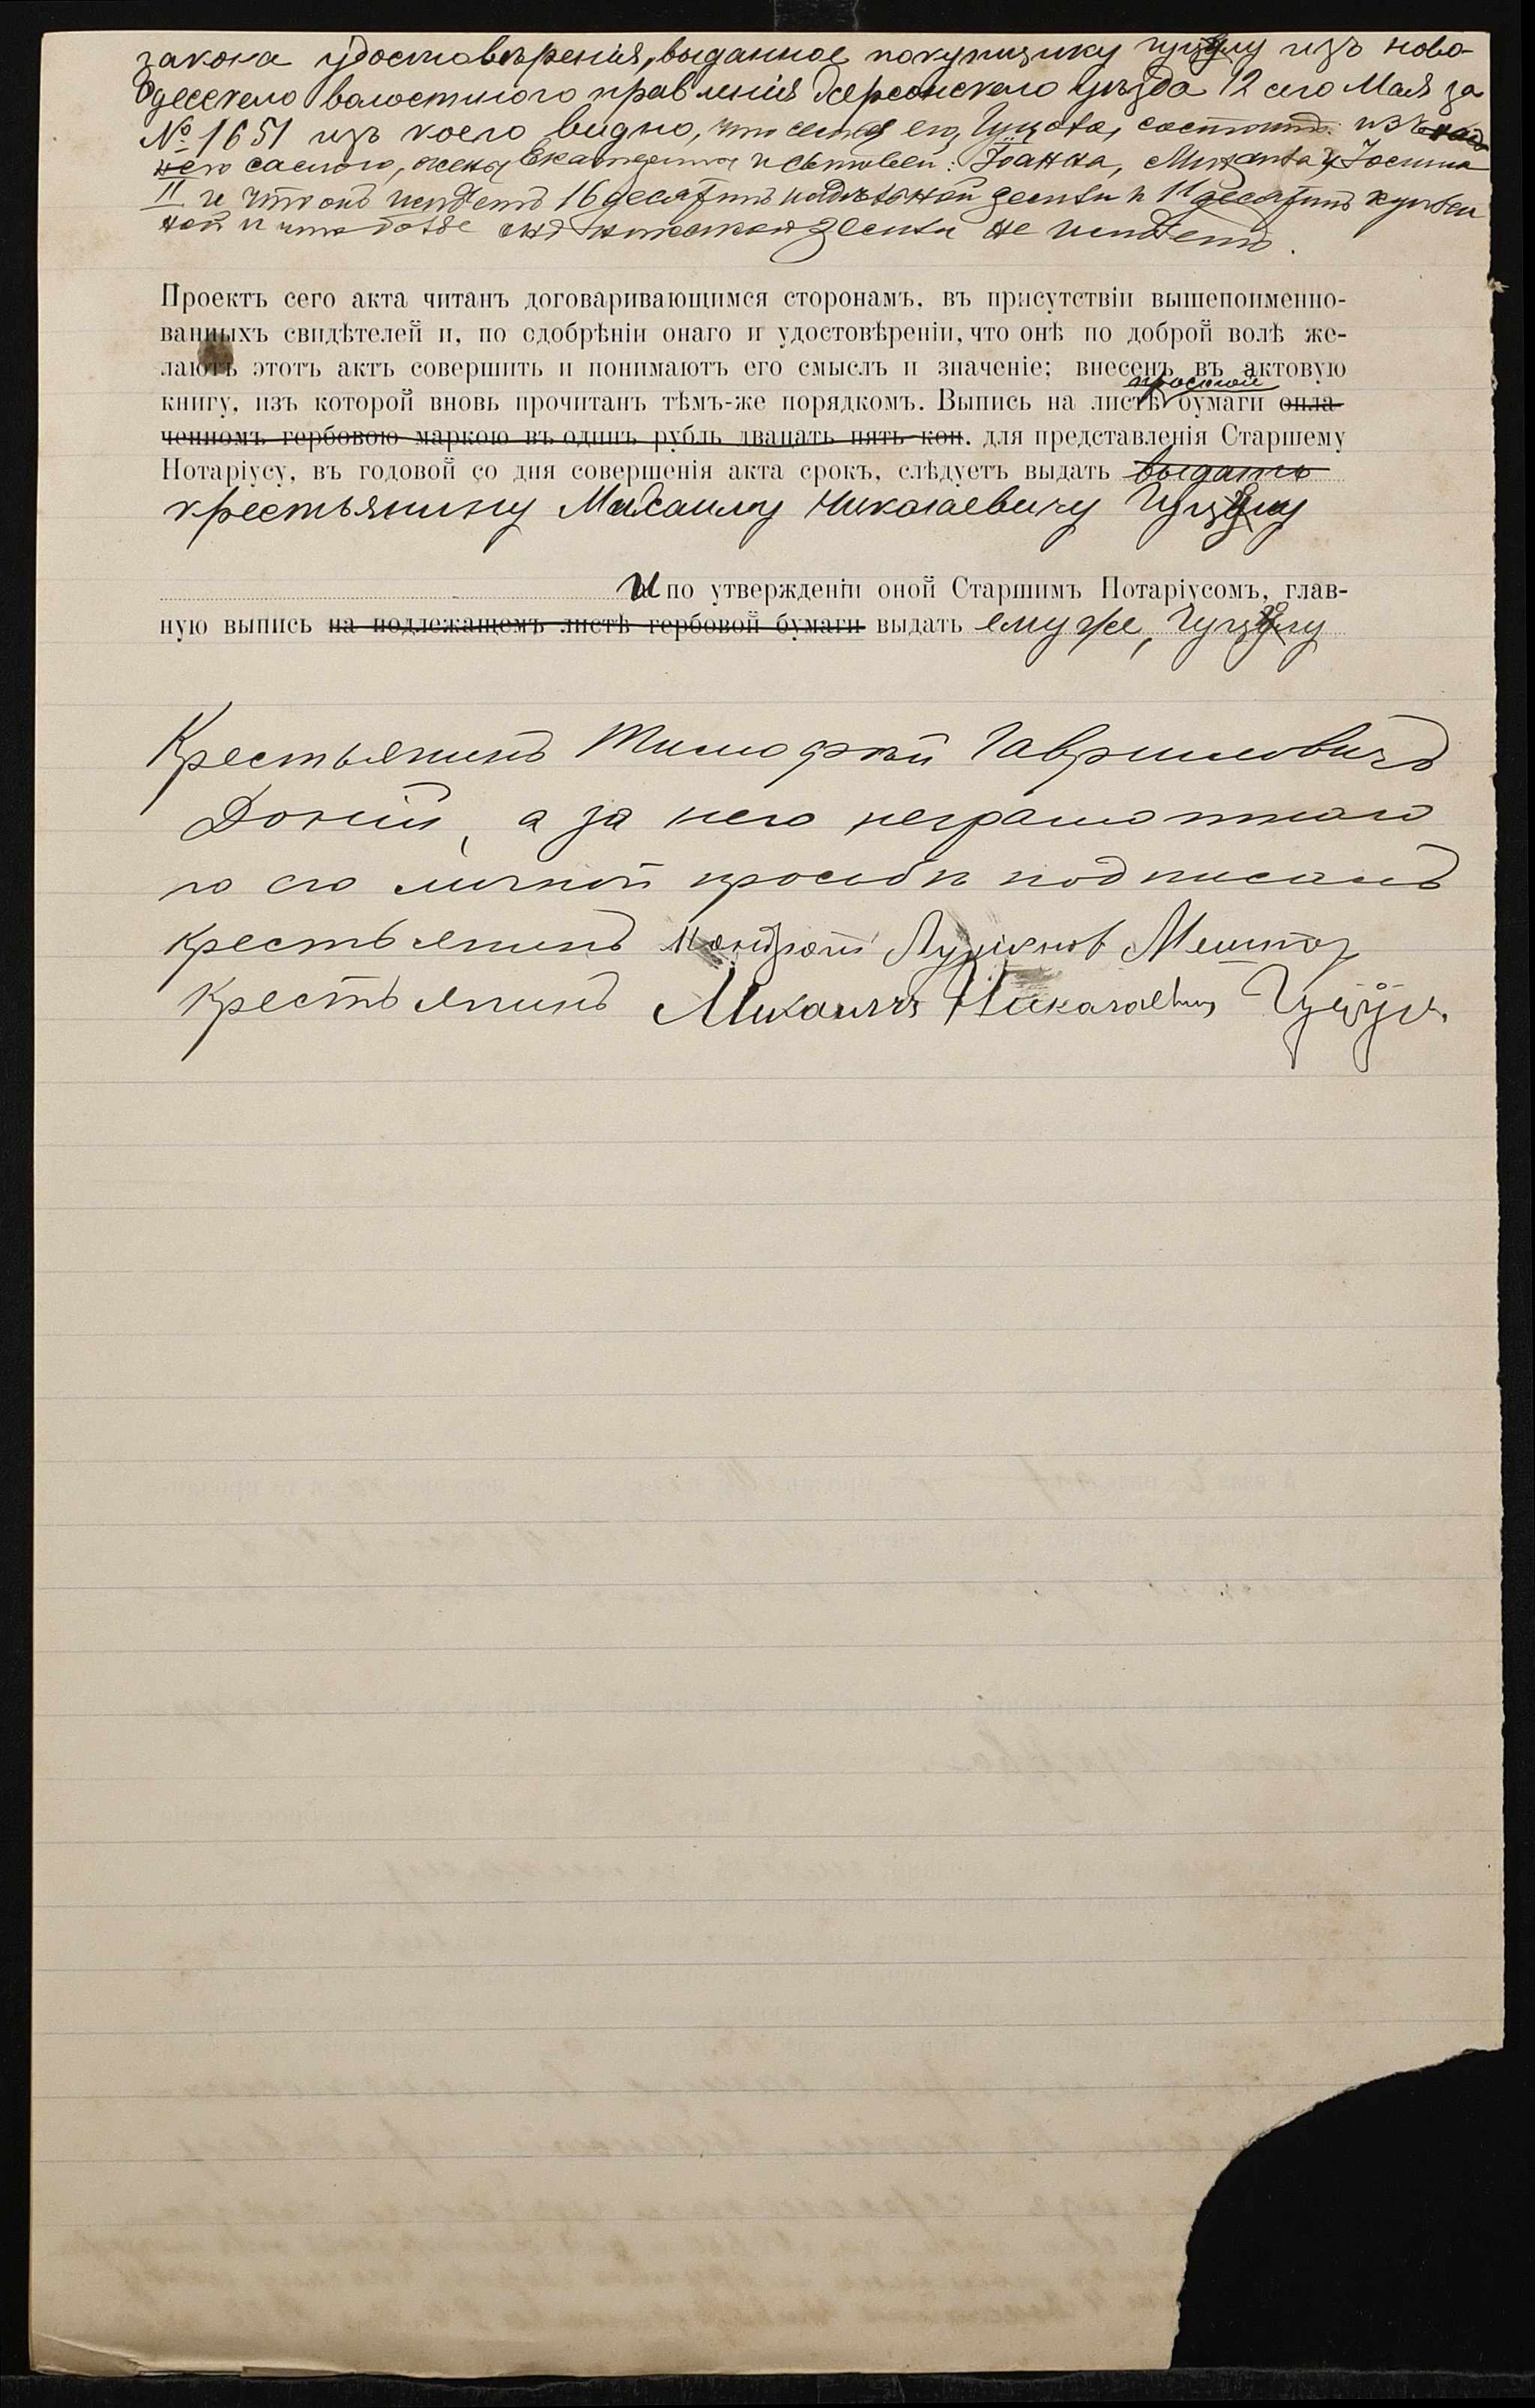 закона удостовѣренія, выданное покупщику Гуцулу изъ ново-
Одесскаго волостного правленія Херсонскаго уѣзда 12 сего Мая за
№ 1651 изъ коего видно, что семья его, Гуцула, состоитъ изъ
него самого, жены Екатерины и сыновей: Іоанна, Михаила и Іосифа
II и что онъ имѣетъ 16 десятинъ надѣльной земли и 11 десятинъ куплен
ной и что болѣе онъ никакой земли не имѣетъ.
Проектъ сего акта читанъ договаривающимся сторонамъ, въ присутствіи вышепоименно-
ванныхъ свидѣтелей и, по сдобрѣніи онаго и удостовѣреніи, что онѣ по доброй волѣ же-
лаютъ этотъ актъ совершить и понимаютъ его смыслъ и значеніе; внесенъ въ актовую
простой
книгу, изъ которой вновь прочитанъ тѣмъ-же порядкомъ. Выпись на листѣ бумаги опла-
ченномъ гербовою маркою въ одинъ рубль двацать пять коп. для представленія Старшему
Нотаріусу, въ годовой со дня совершенія акта срокъ, слѣдуетъ выдать выдать
крестьянину Михаилу Николаевичу Гуцулу
и по утвержденіи оной Старшимъ Нотаріусомъ, глав-
ную выпись на подлежащемъ листѣ гербовой бумаги выдать ему же, Гуцулу
Крестьянинъ Тимофѣй Гавриловичъ
Доній, а за него неграмотнаго
по его личной просьбѣ подписалъ
крестьянинъ Кондратъ Мештер
Крестьянинъ Михаилъ Николаевич Гуцул.